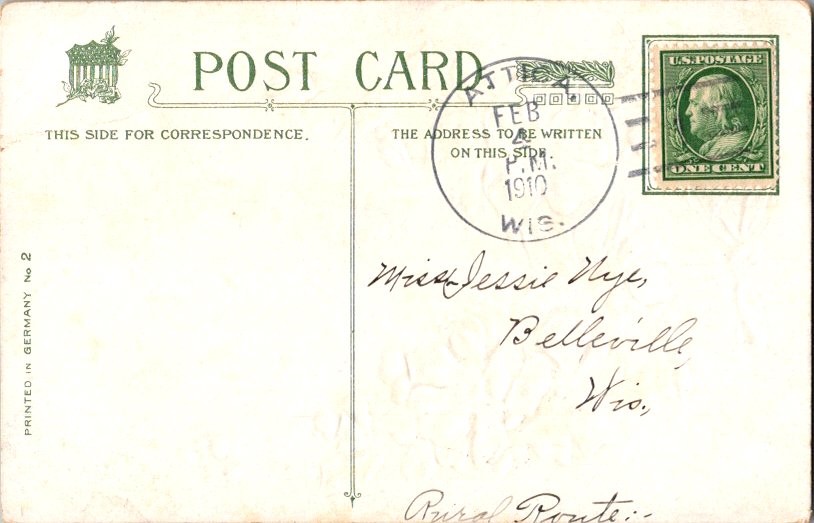 POST CARD
THIS SIDE FOR CORRESPONDENCE.
THE ADDRESS TO BE WRITTEN
ON THIS SIDE
ATTICA
FEB
4
P.M.
1910
WIS.
U.S. POSTAGE
ONE CENT
Miss Jessie Nye,
Belleville,
Wis.,
Rural Route:-
PRINTED IN GERMANY No 2